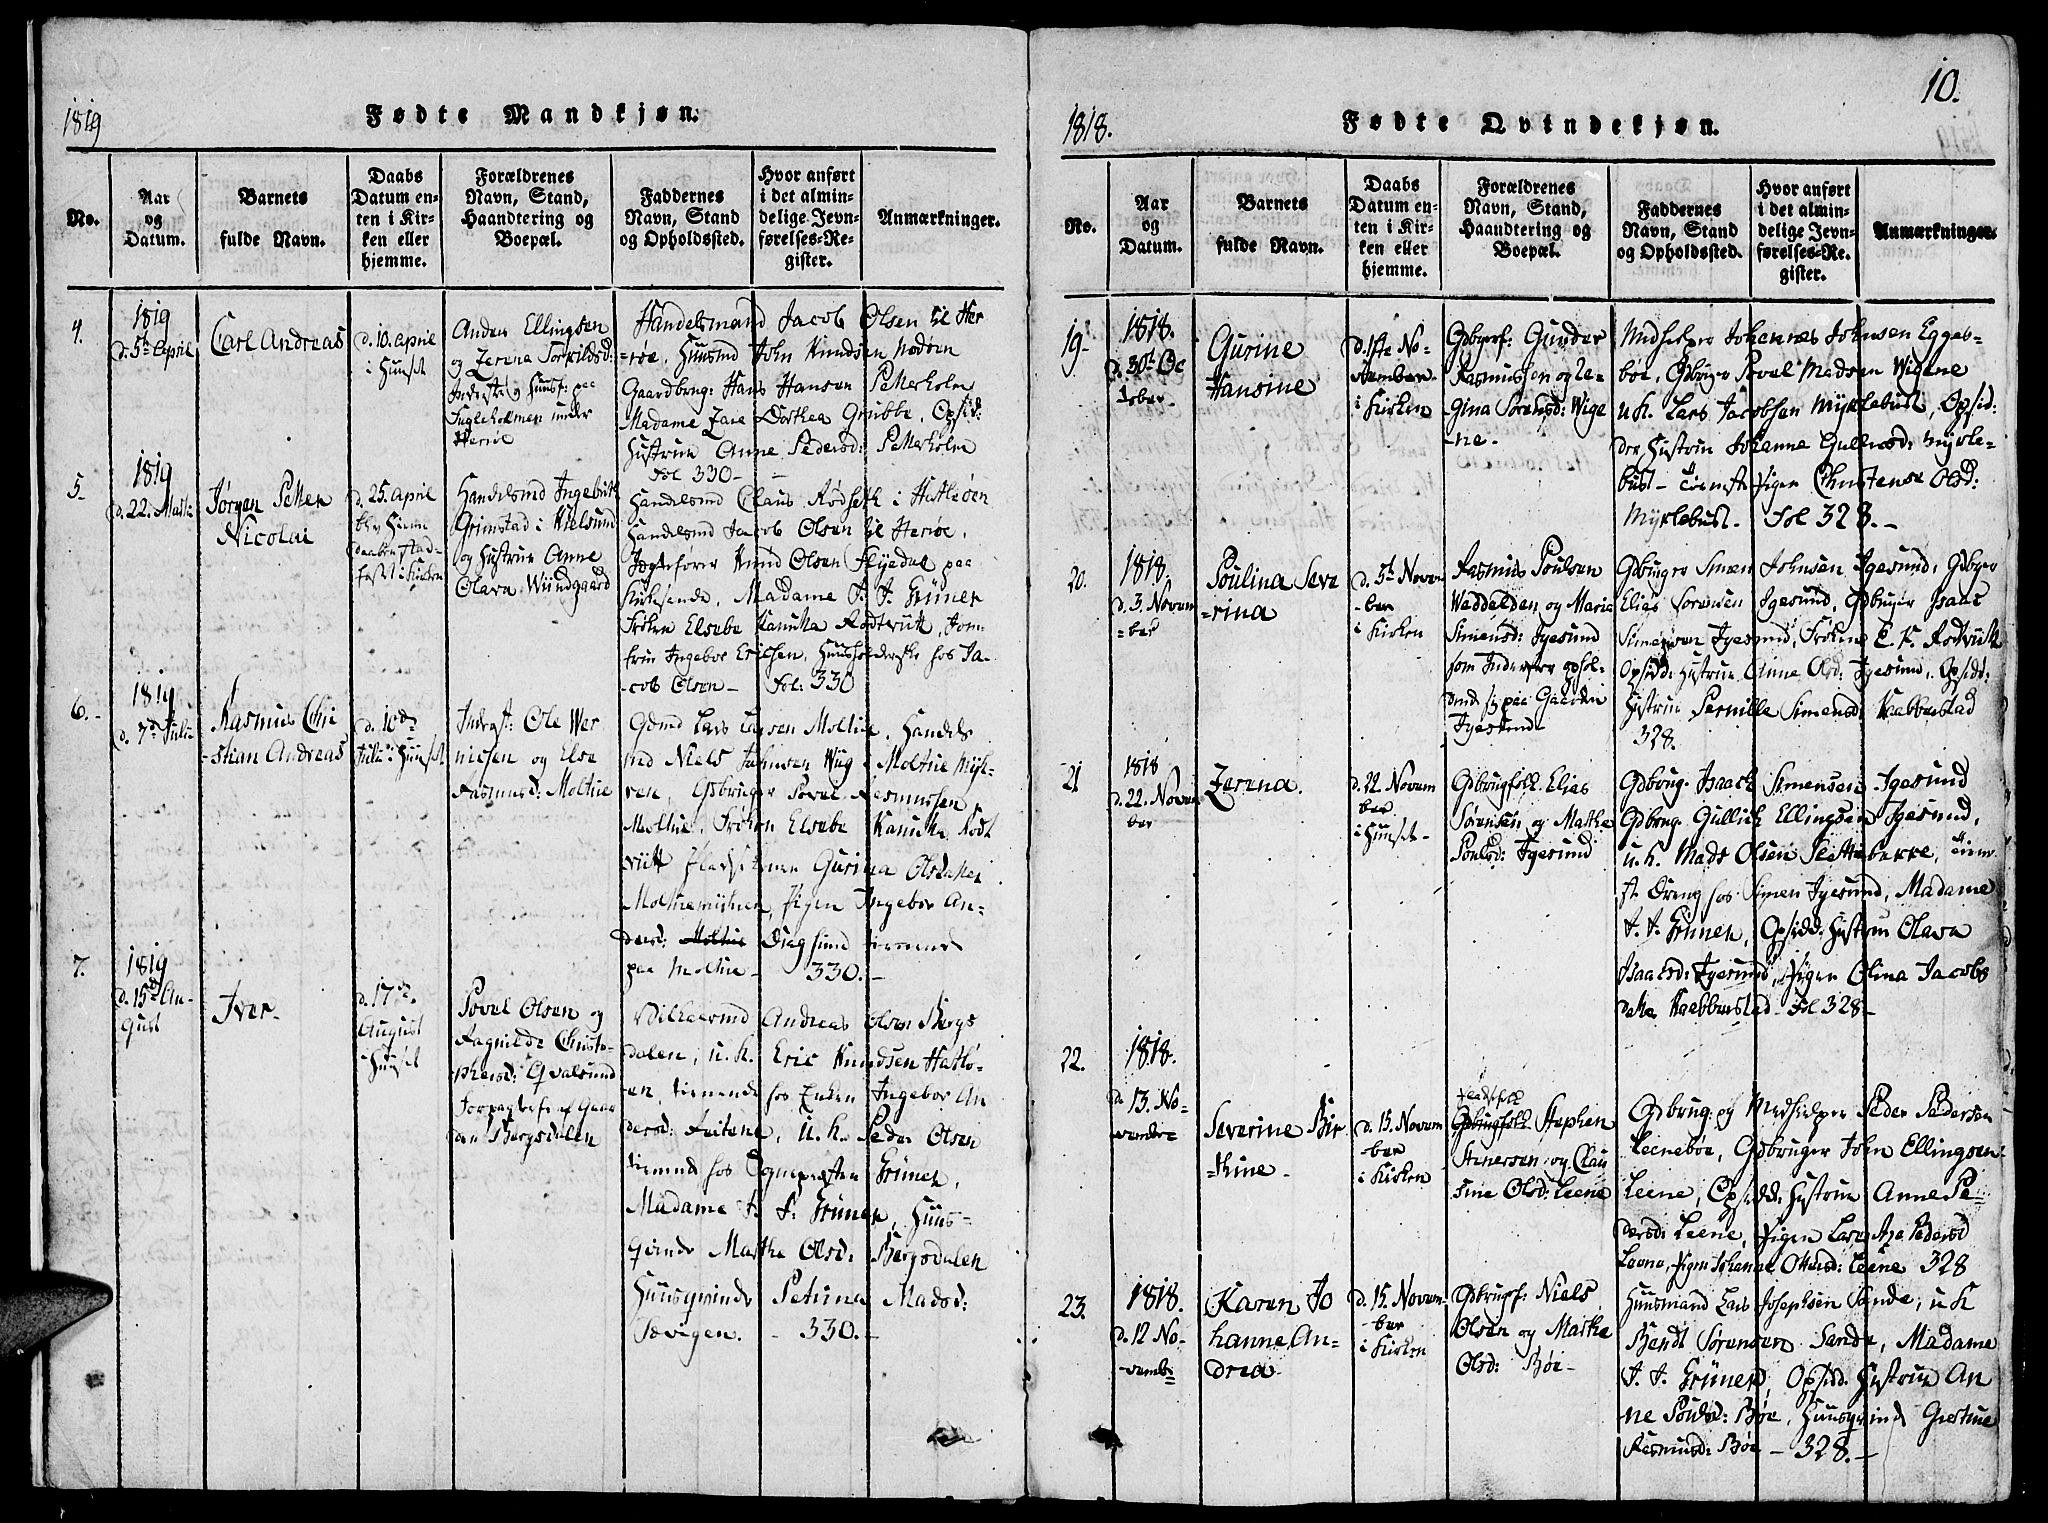 1819
Fødte Mandkjøn.
No.
Aar
og
Datum.
Barnets
fulde Navn.
Daabs
Datum en-
ten i Kir-
ken eller
hjemme.
Forældrenes
Navn, Stand,
Haandtering og
Boepæl.
Faddernes
Navn, Stand
og Opholdssted.
Hvor anført
i det almin-
delige Jevn-
førelses-Re-
gister.
Anmærkninger.
4.
1819
d. 5te April
Carl Andreas
d. 10. April
i Huuset
Anders Ellingsen
og Zerena Torkildsd:
paa
Fugleholmen under
Herøe
Handelsmand Jacob Olsen til Her
-røe, Huusmd John Knudsen
Gaardbrug: Hans Hansen Petterholm
Madame Zare Dorthea Grubbe, Opsid:
Hustrue Anne Pedersd: Petterholm
Fol 330-
5-
1819
d. 22. Marti
Jørgen Petter
Nicolai
d. 25. April
blev Hieme
daaben stad-
fæstet i Kirken
Handelsmd Ingebrikt
Grimstad i Kielsund
og Hustrue Anne
Olava Wiindgaard
Handelsmd Claus Rødseth i Hestøen
Handelsmd Jacob Olsen til Herøe,
Jægtefører Knud Olsen Flyedal paa
Madame J. J. Grüner
Frøken Elsebe Kanuka Rodtvitt, Jom
fru Ingebor Ericsen, Huusholderske hos Ja-
-cob Olsen- Fol: 330
6.-
1819
d. 7de Julii
Rasmus Chri
-stian Andreas
d. 10de
Julii i Huuset
Inderst: Ole Wer
niesen og Else
Rasmusd: Moltue
Gdmd Lars Larsen Moltue, Handels
md Niels Johnsen Wiig i Moltue Myh-
ren, Gdbruger Povel Rasmussen
Moltue, Frøken Elsebe Kanuka Rodt
vitt Gurina Olsdatter
Moltuemyhren, Pigen Ingebor An-
dersd: Dragsund tienende
paa Moltue- 330.-
7.
1819
d. 15de Au-
gust
Iver-
d. 17de
August
i Huuset
Povel Olsen og
Ragnilde Christo-
-phersd: Qvalsund
Forpagtefo. af Gaar
den Bergsdalen
Andreas Olsen Bergs
dalen, u. k. Eric Knudsen Hatlø-
en, tienende hos Enken Ingebor An
dersd: u. k. Peder Olsen
tienende hos Sognepræsten Grüner,
Madame J. J. Grüner, Huus-
qvinde Marthe Olsd: Bergsdalen
Huusqvinde Petrina Madsd:
Sævigen. - 330.-
10.
1818.
Fødte Qvindekjøn.
No.
Aar
og
Datum.
Barnets
fulde Navn.
Daabs
Datum en-
ten i Kir-
ken eller
hjemme.
Forældrenes
Navn, Stand,
Haandtering og
Boepæl.
Faddernes
Navn, Stand
og Opholdssted.
Hvor anført
i det almin-
delige Jevn-
førelses-Re-
gister.
Anmærkninger.
19-
1818.
d. 30te Oc
tober-
Gurine
Hansine
d. 1ste No-
vember-
i Kirken
Gdbgerf: Gunder
Rasmussen og Re-
gina Sørensd: Wige
-ne-
Medhielper Johannes Johnsen Egges-
boe, Gdbruger Povel Madsen Wigene
u. k. Lars Jacobsen Myklebust, Opsid:
der Hustrue Johanne Gullacsd: Mykle-
bust- tienste Pigen Christense Olsd:
Myklebust- Fol 328.-
20.
1818
d. 3. Novem
=ber
Poulina Seve
-rina
d. 5te Novem
-ber
i Kirken
Rasmus Poulsen
og Marie
Simensd: Igesund
som Inderster ophol-
dende sig paa Gaarden
Igesund
Gdbruger Simen Johnsen Igesund, Gdbger
Elias Sørensen Igesund, Gdbruger Isaac
Simensen Igesund, Frøken E. K. Rodtvitt
Opsidd: Hustrue Anne Olsd: Igesund, Opsidd:
Hustrue Pernille Simensd: Kabbestad
328.
21
1818
d. 22. Novem
ber
Zerena.
d. 22 Novem
ber
i Huuset-
Gdbrugfolk Elias
Sørensen og Marthe
Poulsd: Igesund
Gdbrug. Isaach Simensen Igesund
Gdbrug. Gullich Ellingsen Igesund,
u. k. Mads Olsen Slettebakke, tien
st. Dreng hos Simen Igesund, Madame
J. J. Grüner, Opsidd: Hustrue Olava
Isaacsd: Igesund, Pigen Olina Jacobs
datter Kaabbestad- Fol 328-
22.
1818.
d. 13. No-
vembre
Severine Bir
-thine-
d. 15. Novem
-ber
i Kirken
Gdbrugfolk Stephen
Stenersen og Clau
sine Olsd: Leene
Gdbrug: og Medhielper Peder Pedersen
Leenebøe, Gdbruger John Ellingsen
Leene, Opsidd: Hustrue Anne Pe-
dersd: Leene, Pigen Pedersd
Leene, Pigen Johanne Ottersd: Leene 328
23.
1818.
d. 12 No-
-vembr
Karen Jo
hanne An-
drea-
d. 15. Novem-
ber
i Kirken
Gdbrugf: Niels
Olsen og Marthe
Olsd: Bøe-
Huusmand Lars Josephsen Sande, u k
Bendt Sørensen Sande, Madame
J. J. Grüner, Opsidd. Hustrue An
ne Poulsd: Bøe, Huusqvinde Giertrue
Rasmusd: Bøe - 328.-